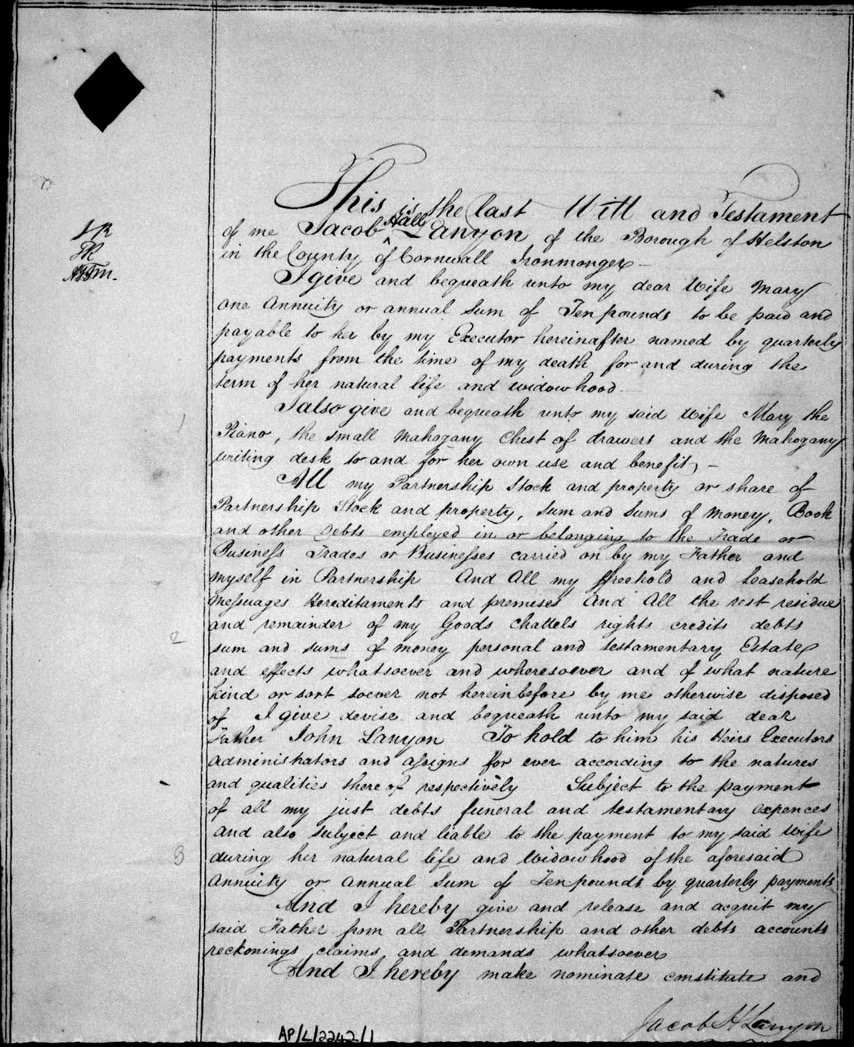 This is the last Will and Testament
of me Jacob Hall Lanyon of the Borough of Helston
in the County of Cornwall Ironmonger
I give and bequeath unto my dear Wife Mary
one Annuity or annual Sum of Ten pounds to be paid and
payable to her by my Executor hereinafter named by quarterly
payments from the time of my death for and during the
term of her natural life and widowhood
I also give and bequeath unto my said Wife Mary the
1
Piano, the small Mahogany Chest of drawers and the Mahogany
writing desk to and for her own use and benefit,
All my Partnership Stock and property or share of
Partnership Stock and property, Sum and Sums of Money, Book
and other Debts employed in or belonging to the Trade or
Business Trades or Businesses carried on by my Father and
myself in Partnership And All my freehold and leasehold
Messuages Hereditaments and premises And All the rest residue
and remainder of my Goods chattels rights credits debts
2
sum and sums of money personal and testamentary Estate
and effects whatsoever and wheresoever and of what nature
kind or sort soever not hereinbefore by me otherwise disposed
of I give devise and bequeath unto my said dear
Father John Lanyon To hold to him his Heirs Executors
administrators and assigns for ever according to the natures
and qualities thereof respectively Subject to the payment
of all my just debts funeral and testamentary expences
and also subject and liable to the payment to my said Wife
3
during her natural life and Widowhood of the aforesaid
Annuity or Annual Sum of Ten pounds by quarterly payments
And I hereby give and release and acquit my
said Father from all Partnership and other debts accounts
reckonings claims and demands whatsoever
And I hereby make nominate constitute and
Jacob H Lanyon
AP/L/2242/1